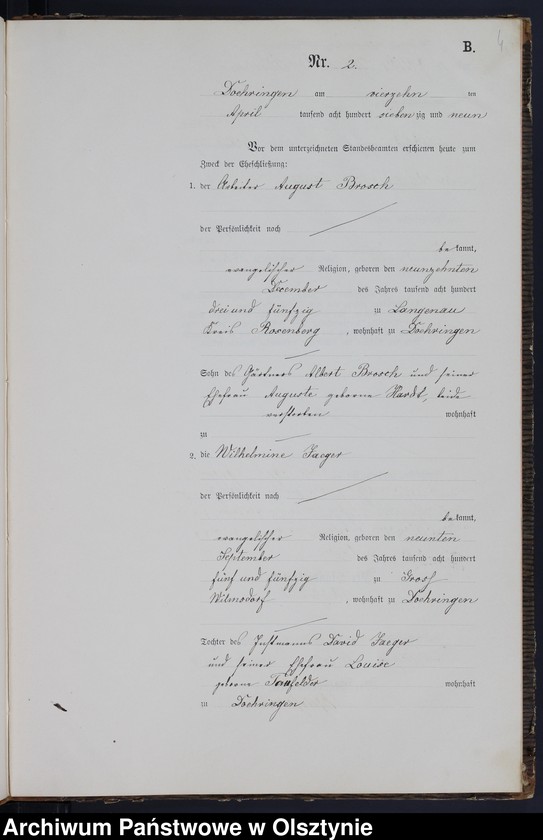 4
B.
Nr. 2.
Doehringen am vierzehn ten
April tausend acht hundert sieben zig und neun
Vor dem unterzeichneten Standesbeamten erschienen heute zum
Zweck der Eheschließung:
1. der Arbeiter August Brosch
der Persönlichkeit nach
be kannt,
evangelischer Religion, geboren den neunzehnten
December des Jahres tausend acht hundert
drei und fünfzig zu Langenau
Kreis Rosenberg, wohnhaft zu Doehringen
Sohn des Gärtners Albert Brosch und seiner
Ehefrau Auguste geborne Hardt, beide
verstorben wohnhaft
zu
2. die Wilhelmine Jaeger
der Persönlichkeit nach
be kannt,
evangelischer Religion, geboren den neunten
September des Jahres tausend acht hundert
fünf und fünfzig zu Gross
Wilmsdorf, wohnhaft zu Doehringen
Tochter des Instmanns David Jaeger
und seiner Ehefrau Louise
geborne wohnhaft
zu Doehringen
Archiwum Państwowe w Olsztynie